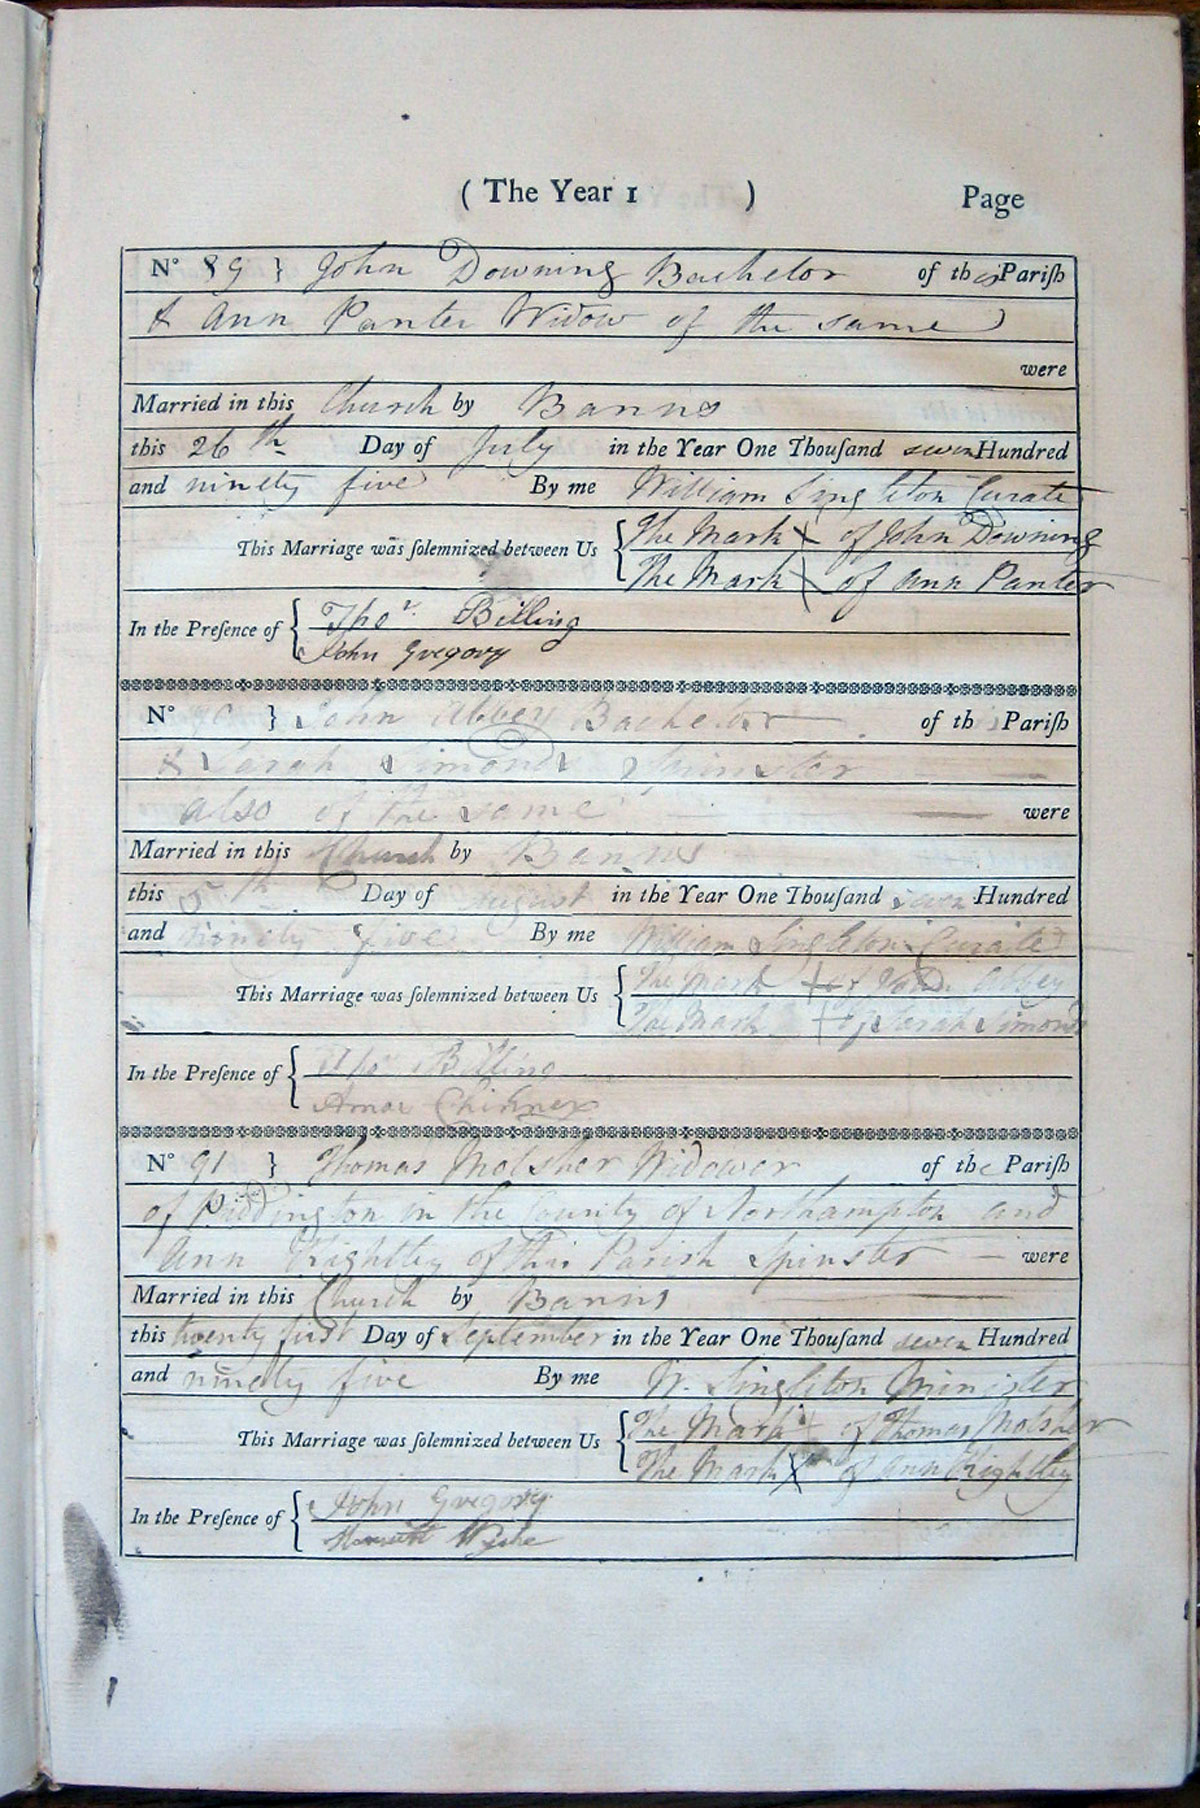 ( The Year 1 ) Page
N° 89 } John Downing Bachelor of this Pariſh
& Ann Panter Widow of the same
were
Married in this Church by Banns
this 26th Day of July in the Year One Thouſand seven Hundred
and ninety five By me William Singleton Curate
This Marriage was ſolemnized between Us { The Mark X of John Downing
The Mark X of Ann Panter
In the Preſence of { Thos. Billing
John Gregory
N° 90 } John Abbey Bachelor of this Pariſh
& Sarah Simonds Spinster
also of the same were
Married in this Church by Banns
this 5th Day of August in the Year One Thouſand seven Hundred
and ninety five By me William Singleton Curate
This Marriage was ſolemnized between Us { The Mark + of John Abbey
The Mark + of Sarah Simonds
In the Preſence of { Thos Billing
Amos
N° 91 } Thomas Molsher Widower of the Pariſh
of Piddington in the County of Northampton and
Ann Kightley of this Parish Spinster were
Married in this Church by Banns
this twenty first Day of September in the Year One Thouſand seven Hundred
and ninety five By me W. Singleton Minister
This Marriage was ſolemnized between Us { The Mark + of Thomas Molsher
The Mark X of Ann Kightley
In the Preſence of { John Gregory